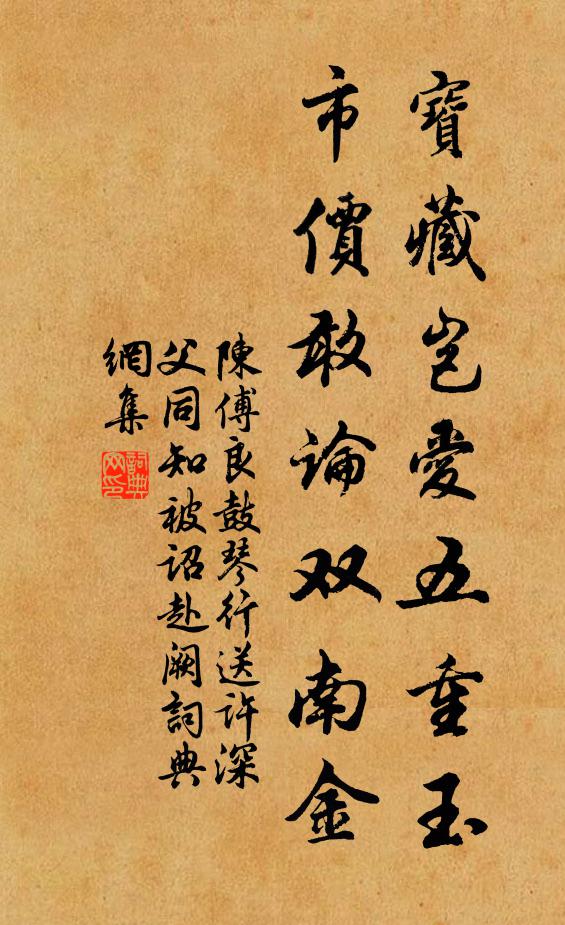 寶藏豈愛五重玉
市價敢論双南金
陳傅良鼓琴行送许深
父同知被诏赴阙詞典
網集
詞典
网印